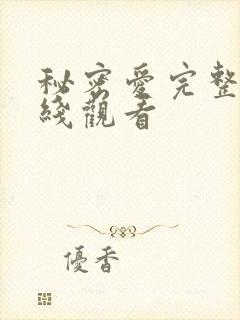 秘密愛完整
綫觀看
優香